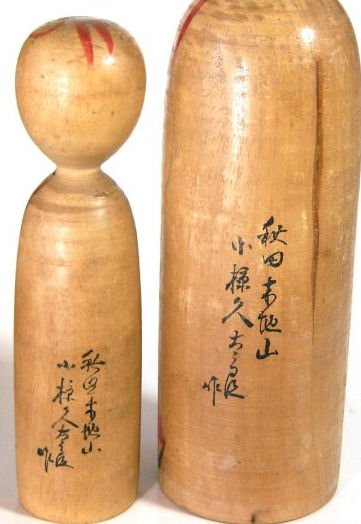 秋田木地山
小椋久太郎作
秋田木地山
小椋久太郎作